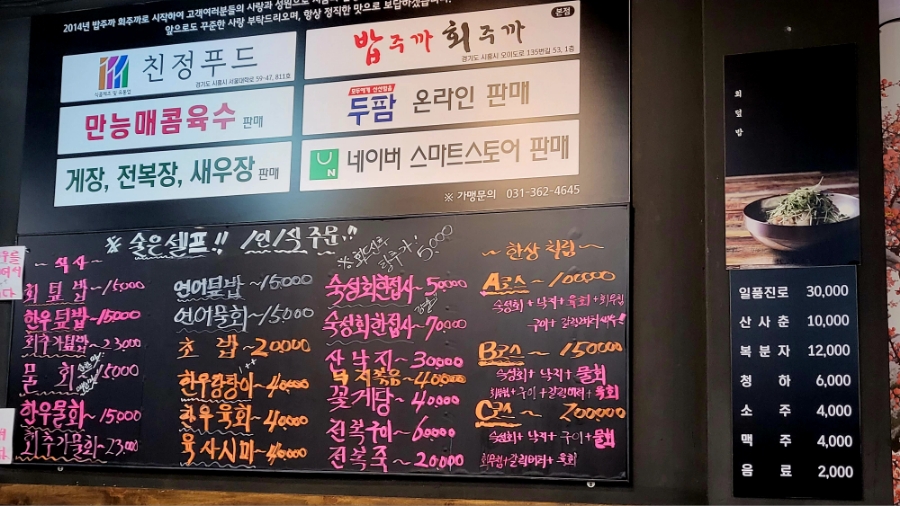 2014년 밥주까 회주까로 시작하여 고객여러분들의 사랑과 성원으로
앞으로도 꾸준한 사랑 부탁드리오며, 항상 정직한 맛으로 보답하겠습니다.
친정푸드
경기도 시흥시 서울대학로 59-47, 811호
본점
밥주까 회주까
경기도 시흥시 오이도로 135번길 53, 1층
만능매콤육수 판매
두팜 온라인 판매
게장, 전복장, 새우장 판매
N 네이버 스마트스토어 판매
※ 가맹문의 031-362-4645
※ 술은셀프!! 1인1잔주문!!
~ 식사 ~
회덮밥 ~ 15000
한우덮밥 ~ 15000
회추가덮밥 ~ 23000
물회 ~ 15000
한우물회 ~ 15000
회추가물회 ~ 23000
연어덮밥 ~ 15000
연어물회 ~ 15000
초밥 ~ 20000
한우탕탕이 ~ 40000
한우육회 ~ 40000
육사시미 ~ 40000
5000
숙성회한접시 ~ 50000
숙성회한접시 ~ 70000
산낙지 ~ 30000
낙지볶음 ~ 40000
꽃게당 ~ 40000
전복구이 ~ 60000
전복죽 ~ 20000
~ 한상차림 ~
A코스 ~ 100000
숙성회 + 낙지 + 육회 + 회무침
B코스 ~ 150000
숙성회 + 낙지 + 물회
C코스 ~ 200000
숙성회 + 낙지 + 구이 + 물회
회덮밥
일품진로 30,000
산사춘 10,000
복분자 12,000
청하 6,000
소주 4,000
맥주 4,000
음료 2,000